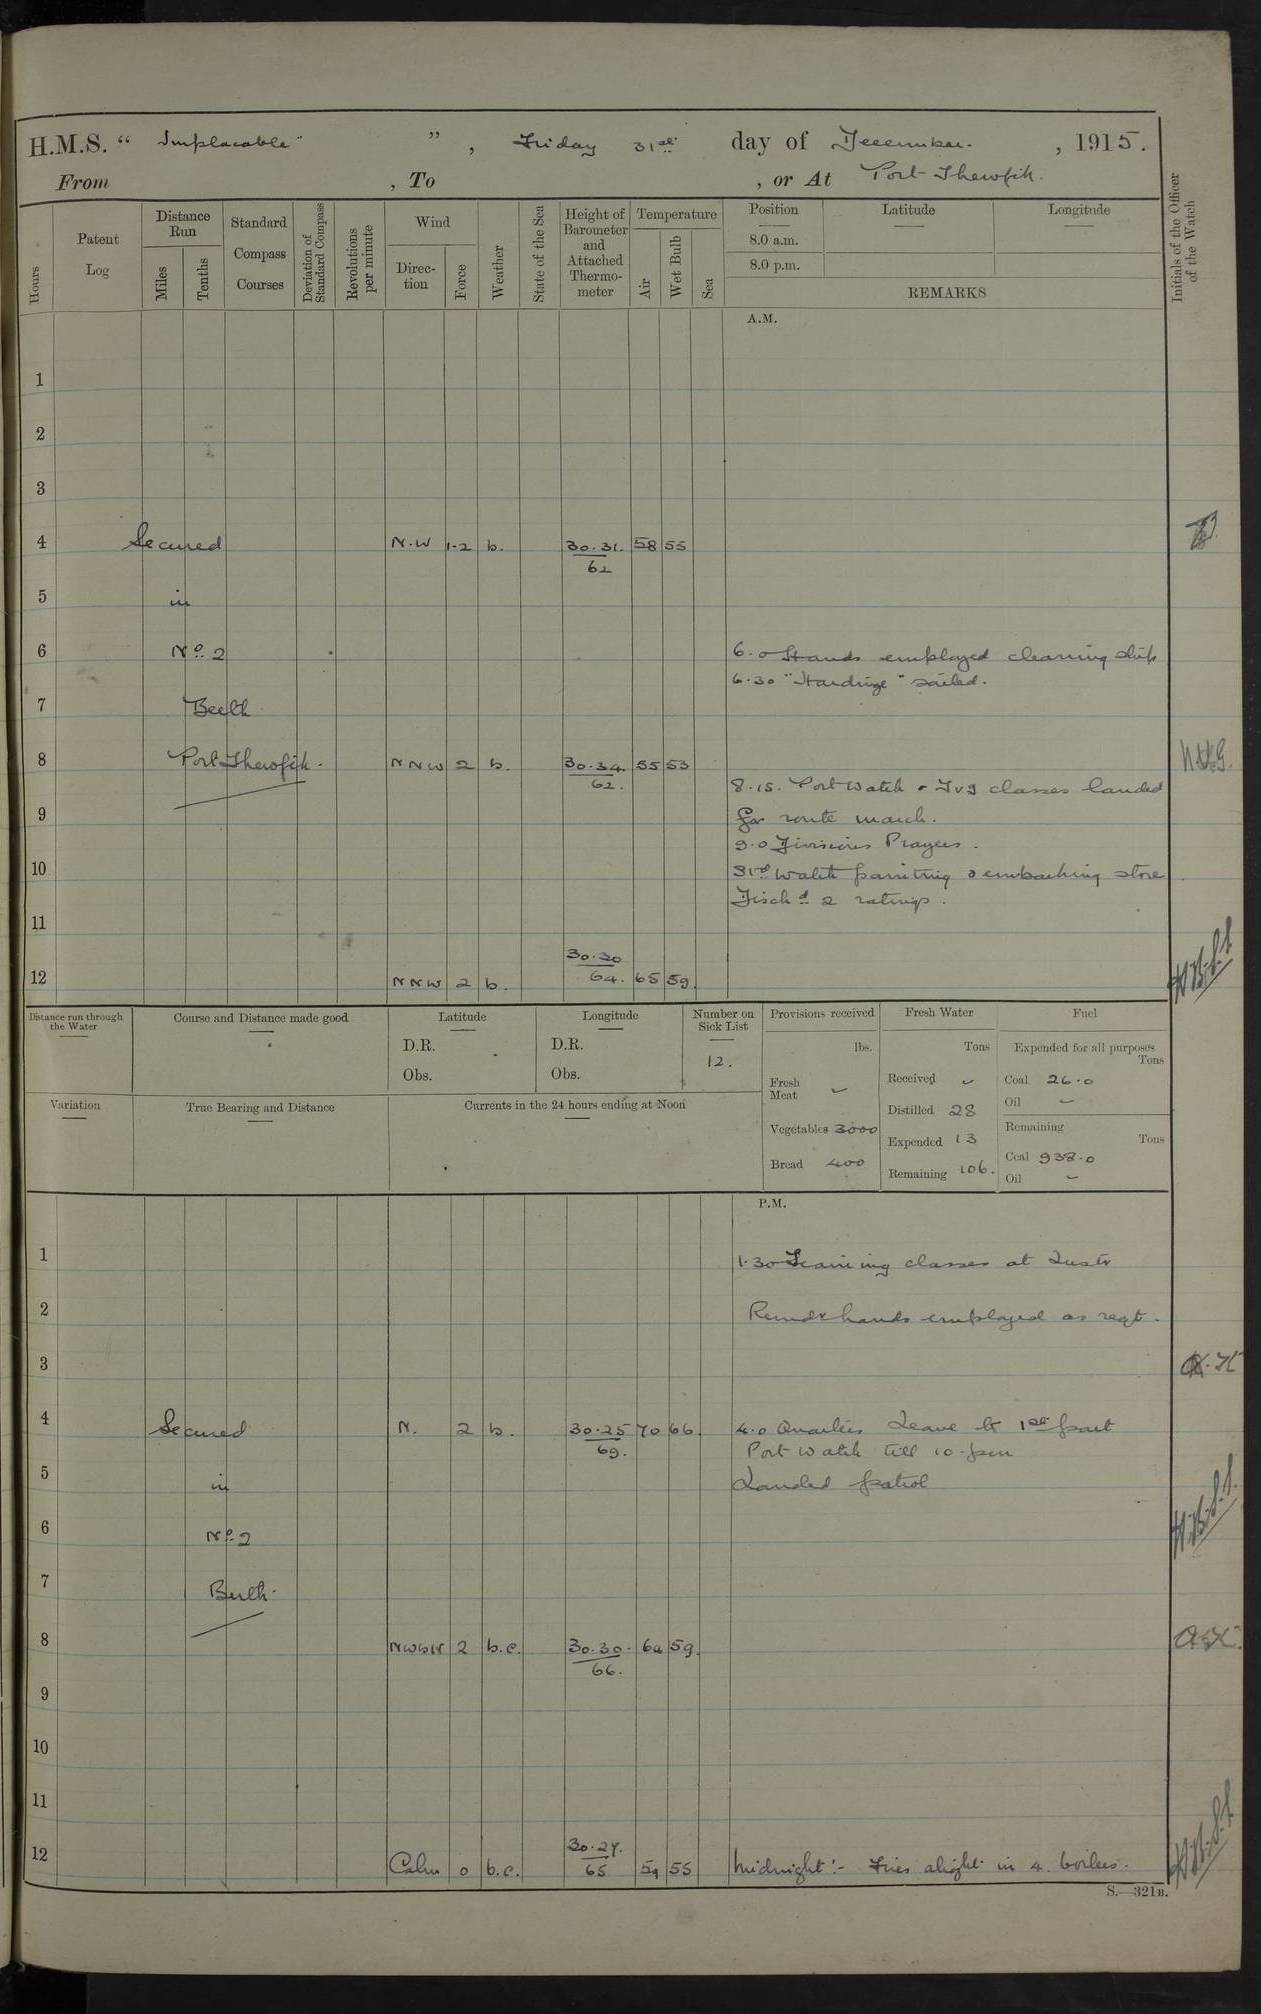 H.M.S. “ Implacable ” , Friday 31st day of December. , 1915.
From , To , or At Port Thewfik.
Hours
Patent Log
Distance Run
Miles
Tenths
Standard Compass Courses
Deviation of Standard Compass
Revolutions per minute
Wind
Direction
Force
Weather
State of the Sea
Height of Barometer and Attached Thermometer
Temperature
Air
Wet Bulb
Sea
Position
8.0 a.m.
8.0 p.m.
Latitude
Longitude
REMARKS
Initials of the Officer of the Watch
A.M.
1
2
3
4 Secured N.W 1-2 b. 30.31. 58 55
62
5 in
6 No 2 6.0 Hands employed cleaning ship
6.30 "Hardinge" sailed.
7 Berth
8 Port Thewfik. NNW 2 b. 30.34. 55 53
62.
8.15. Port Watch & Tvg classes landed
9 for route march.
9.0 Divisions Prayers.
10 Stbd Watch painting & embarking store
Disch d 2 ratings.
11
30.30
12 NNW 2 b. 64. 65 59.
Distance run through the Water
Course and Distance made good
Latitude
D.R.
Obs.
Longitude
D.R.
Obs.
Number on Sick List
12.
Provisions received
lbs.
Fresh Meat –
Vegetables 3000
Bread 400
Fresh Water
Tons
Received –
Distilled 28
Expended 13
Remaining 106.
Fuel
Expended for all purposes
Tons
Coal 26.0
Oil –
Remaining
Tons
Coal 938.0
Oil –
Variation
True Bearing and Distance
Currents in the 24 hours ending at Noon
P.M.
1 1.30 Training classes at Instr
2 Remdr hands employed as reqt.
3
4 Secured N. 2 b. 30.25 70 66. 4.0 Quarters Leave to 1st part
69. Port Watch till 10.pm
5 in Landed patrol
6 No 2
7 Berth.
8 NWbN 2 b.c. 30.30. 64 59.
66.
9
10
11
30.27.
12 Calm 0 b.c. 65 59 55 Midnight:- Fires alight in 4. boilers.
S.—321B.